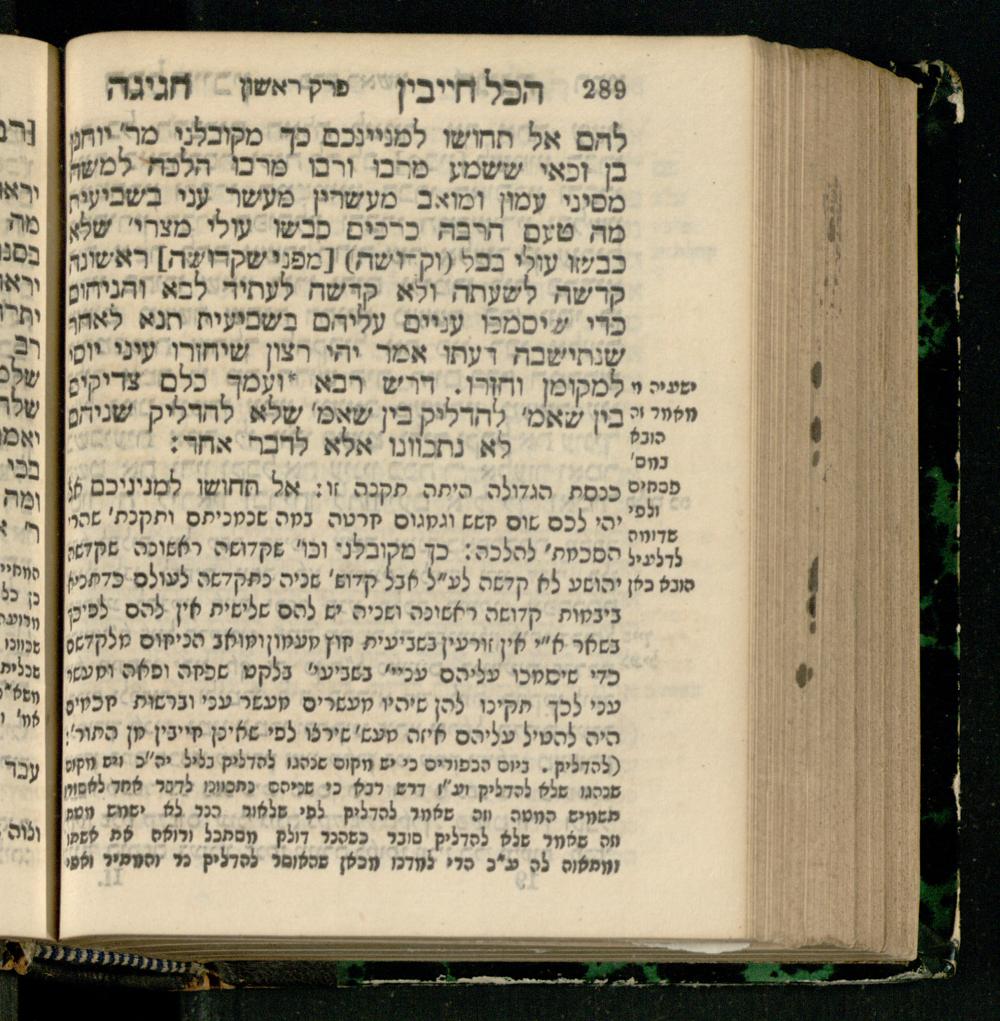 289 הכל חייבין פרק ראשון חגיגה
להם אל תחושו למניינכם כך מקובלני מר׳ יוחנן
בן זכאי ששמע מרבו ורבו מרבו הלכה למשה
מסיני עמון ומואב מעשרין מעשר עני בשביעית
מה טעם הרבה כרכים כבשו עולי מצרי׳ שלא
כבשו עולי בבל (וקדושה) [מפני שקדושה] ראשונה
קדשה לשעתה ולא קדשה לעתיד לבא והניחום
כדי שיסמכו עניים עליהם בשביעית תנא לאחר
שנתישבה דעתו אמר יהי רצון שיחזרו עיני יוסי
למקומן וחזרו. דרש רבא *ועמך כלם צדיקים
בין שאמ׳ להדליק בין שאמ׳ שלא להדליק שניהם
לא נתכוונו אלא לדבר אחד:
ישעיה
מאמר זה
הובא
במס׳
פסחים
ולפי
שדומה
לדלעיל
הובא כאן
כנסת הגדולה היתה תקנה זו: אל תחושו למניניכם אל
יהי לכם שום חשש וגמגום חרטה במה שנמניתם ותקנת׳ שהרי
הסכמת׳ להלכה: כך מקובלני וכו׳ שקדושה ראשונה שקדשה
יהושע לא קדשה לע״ל אבל קדוש׳ שניה נתקדשה לעולם כדתניא
ביבמות קדושה ראשונה ושניה יש להם שלישית אין להם לפיכך
בשאר א״י אין זורעין בשביעית חוץ מעמון ומואב הניחום מלקדשם
כדי שיסמכו עליהם עניי׳ בשביעי׳ בלקט שכחה ופאה ומעשר
עני לכך תקינו להן שיהיו מעשרים מעשר עני וברשות חכמים
היה להטיל עליהם איזה מעש׳ שירצו לפי שאינן חייבין מן התור׳:
(להדליק. ביום הכפורים כי יש מקום שנהגו להדליק בליל יה״כ ויש מקום
שנהגו שלא להדליק וע״ז דרש רבא כי שניהם נתכוונו לדבר אחד לאסור
תשמיש המטה וזה שאמר להדליק לפי שלאור הנר לא ישמש מטתו
וזה שאמר שלא להדליק סובר כשהנר דולק מסתכל ורואה את אשתו
ומתאוה לה ע״כ הרי למדנו מכאן שהאוסר להדליק נר והמתיר ואפי
19 II.